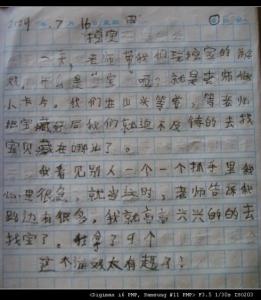 2024年7月16日
挖宝
一天，老师带我们玩挖宝的游
戏，什么是挖宝呢？就是老师做
卡片，我们在山头等老，等老师
把宝藏好后我们就迫不及待的去找
宝贝藏在哪儿了。
我看见别人一个一个抓手里我
心里很急，就当这时，老师告诉我
路边有很多，我就高高兴兴的的去
找宝了，我拿了9个
这个游戏太有趣了！
<Digimax i6 PMP, Samsung #11 PMP> F3.5 1/30s ISO203